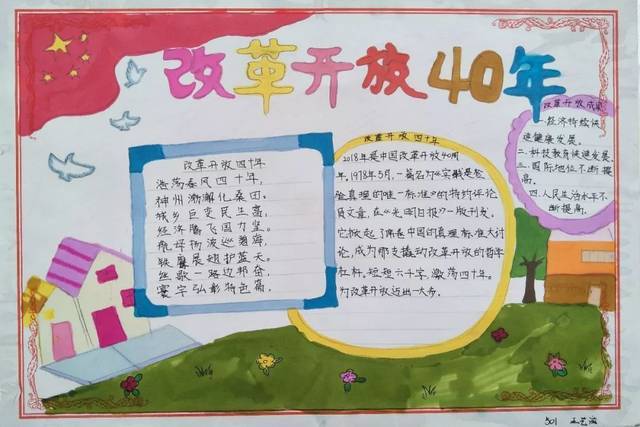 改革开放40年
改革开放四十年
浩荡春风四十年,
神州渐渐化桑田。
城乡巨变民生高,
经济腾飞国力坚。
航母扬波巡碧海,
铁翼展翅护蓝天。
丝歌一路边邦奋,
寰宇弘彰特色篇。
改革开放四十年
2018年是中国改革开放40周
年,1978年5月,一篇名为《实践是检
验真理的唯一标准》的特约评论
员文章,在《光明日报》一版刊发。
它掀起了席卷中国的真理标准大讨
论,成为那支撬动改革开放的哲学
杠杆。短短六千字,激荡四十年。
为改革开放迈出一大步。
改革开放成果
一.经济持续快
速健康发展。
二.科技教育快速发展。
三.国际地位不断提
高。
四.人民生活水平不
断提高。
501